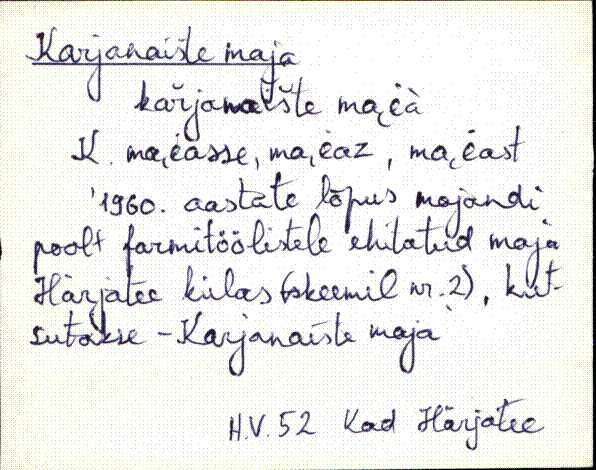 Karjanaiste maja
kar̆janaište mai̯i̯à
K. mai̯i̯asse, mai̯i̯az, mai̯i̯ast
'1960. aastate lõpus majandi
poolt farmitöölistele ehitatud maja
Härjatee külas (skeemil nr. 2), kut-
sutakse - Karjanaiste maja'
H.V. 52 Kad Härjatee